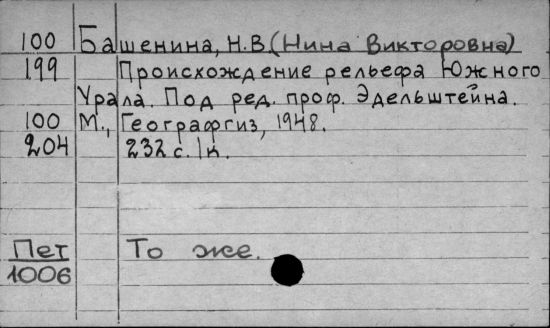 100 Башенина, Н.В. (Нина Викторовна)
199 Происхождение рельефа Южного
Урала. Под ред. проф. Эдельштейна.
100 М., Географгиз, 1948.
204 232 с. 1 к.
Пет То же.
1006